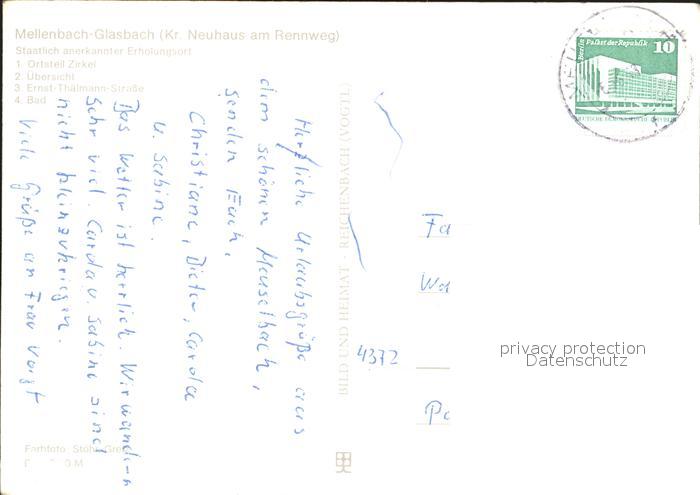 Mellenbach-Glasbach (Kr. Neuhaus am Rennweg)
Staatlich anerkannter Erholungsort
1. Ortsteil Zirkel
2. Übersicht
3. Ernst-Thälmann-Straße
4. Bad
Herzliche Urlaubsgrüße aus
dem schönen Meuselbach,
senden Euch,
Christiane, Dieter, Carola
u. Sabine.
Das Wetter ist herrlich. Wir wandern
sehr viel. Carola u. Sabine sind
nicht kleinzukriegen.
Viele Grüße an Frau Voigt
BILD UND HEIMAT · REICHENBACH (VOGTL)
Berlin Palast der Republik 10
DEUTSCHE DEMOKRATISCHE REPUBLIK
Fa
We
4372
Pa
privacy protection
Datenschutz
Farbfoto
M